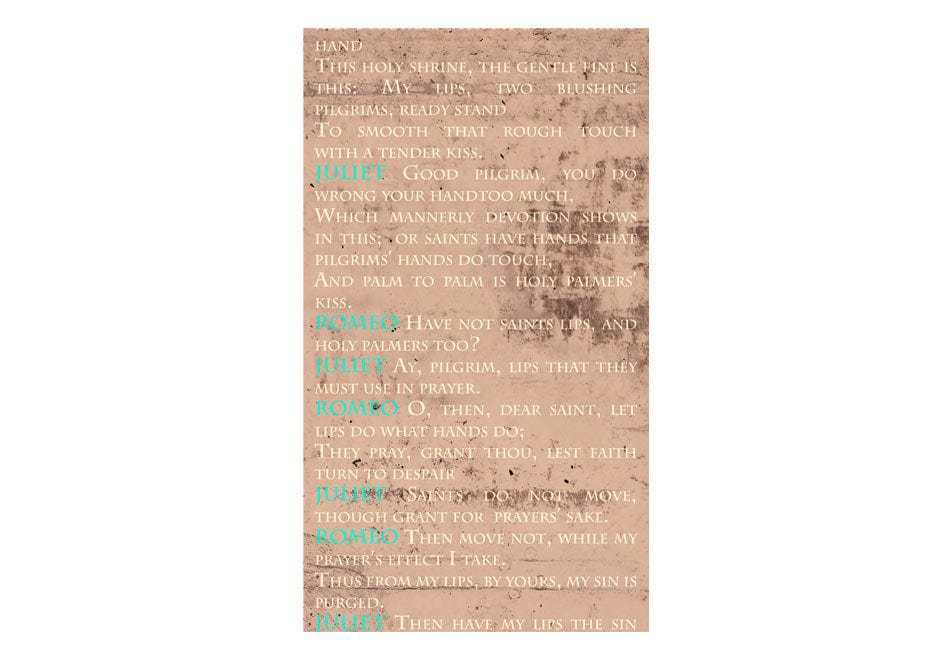 HAND
THIS HOLY SHRINE, THE GENTLE FINE IS
THIS: MY LIPS, TWO BLUSHING
PILGRIMS, READY STAND
TO SMOOTH THAT ROUGH TOUCH
WITH A TENDER KISS.
JULIET GOOD PILGRIM, YOU DO
WRONG YOUR HANDTOO MUCH,
WHICH MANNERLY DEVOTION SHOWS
IN THIS; OR SAINTS HAVE HANDS THAT
PILGRIMS' HANDS DO TOUCH,
AND PALM TO PALM IS HOLY PALMERS'
KISS.
ROMEO HAVE NOT SAINTS LIPS, AND
HOLY PALMERS TOO?
JULIET AY, PILGRIM, LIPS THAT THEY
MUST USE IN PRAYER.
ROMEO O, THEN, DEAR SAINT, LET
LIPS DO WHAT HANDS DO;
THEY PRAY, GRANT THOU, LEST FAITH
TURN TO DESPAIR
JULIET SAINTS DO NOT MOVE,
THOUGH GRANT FOR PRAYERS' SAKE.
ROMEO THEN MOVE NOT, WHILE MY
PRAYER'S EFFECT I TAKE.
THUS FROM MY LIPS, BY YOURS, MY SIN IS
PURGED.
JULIET THEN HAVE MY LIPS THE SIN